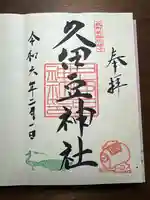 奉拝
久伊豆神社
令和六年二月一日